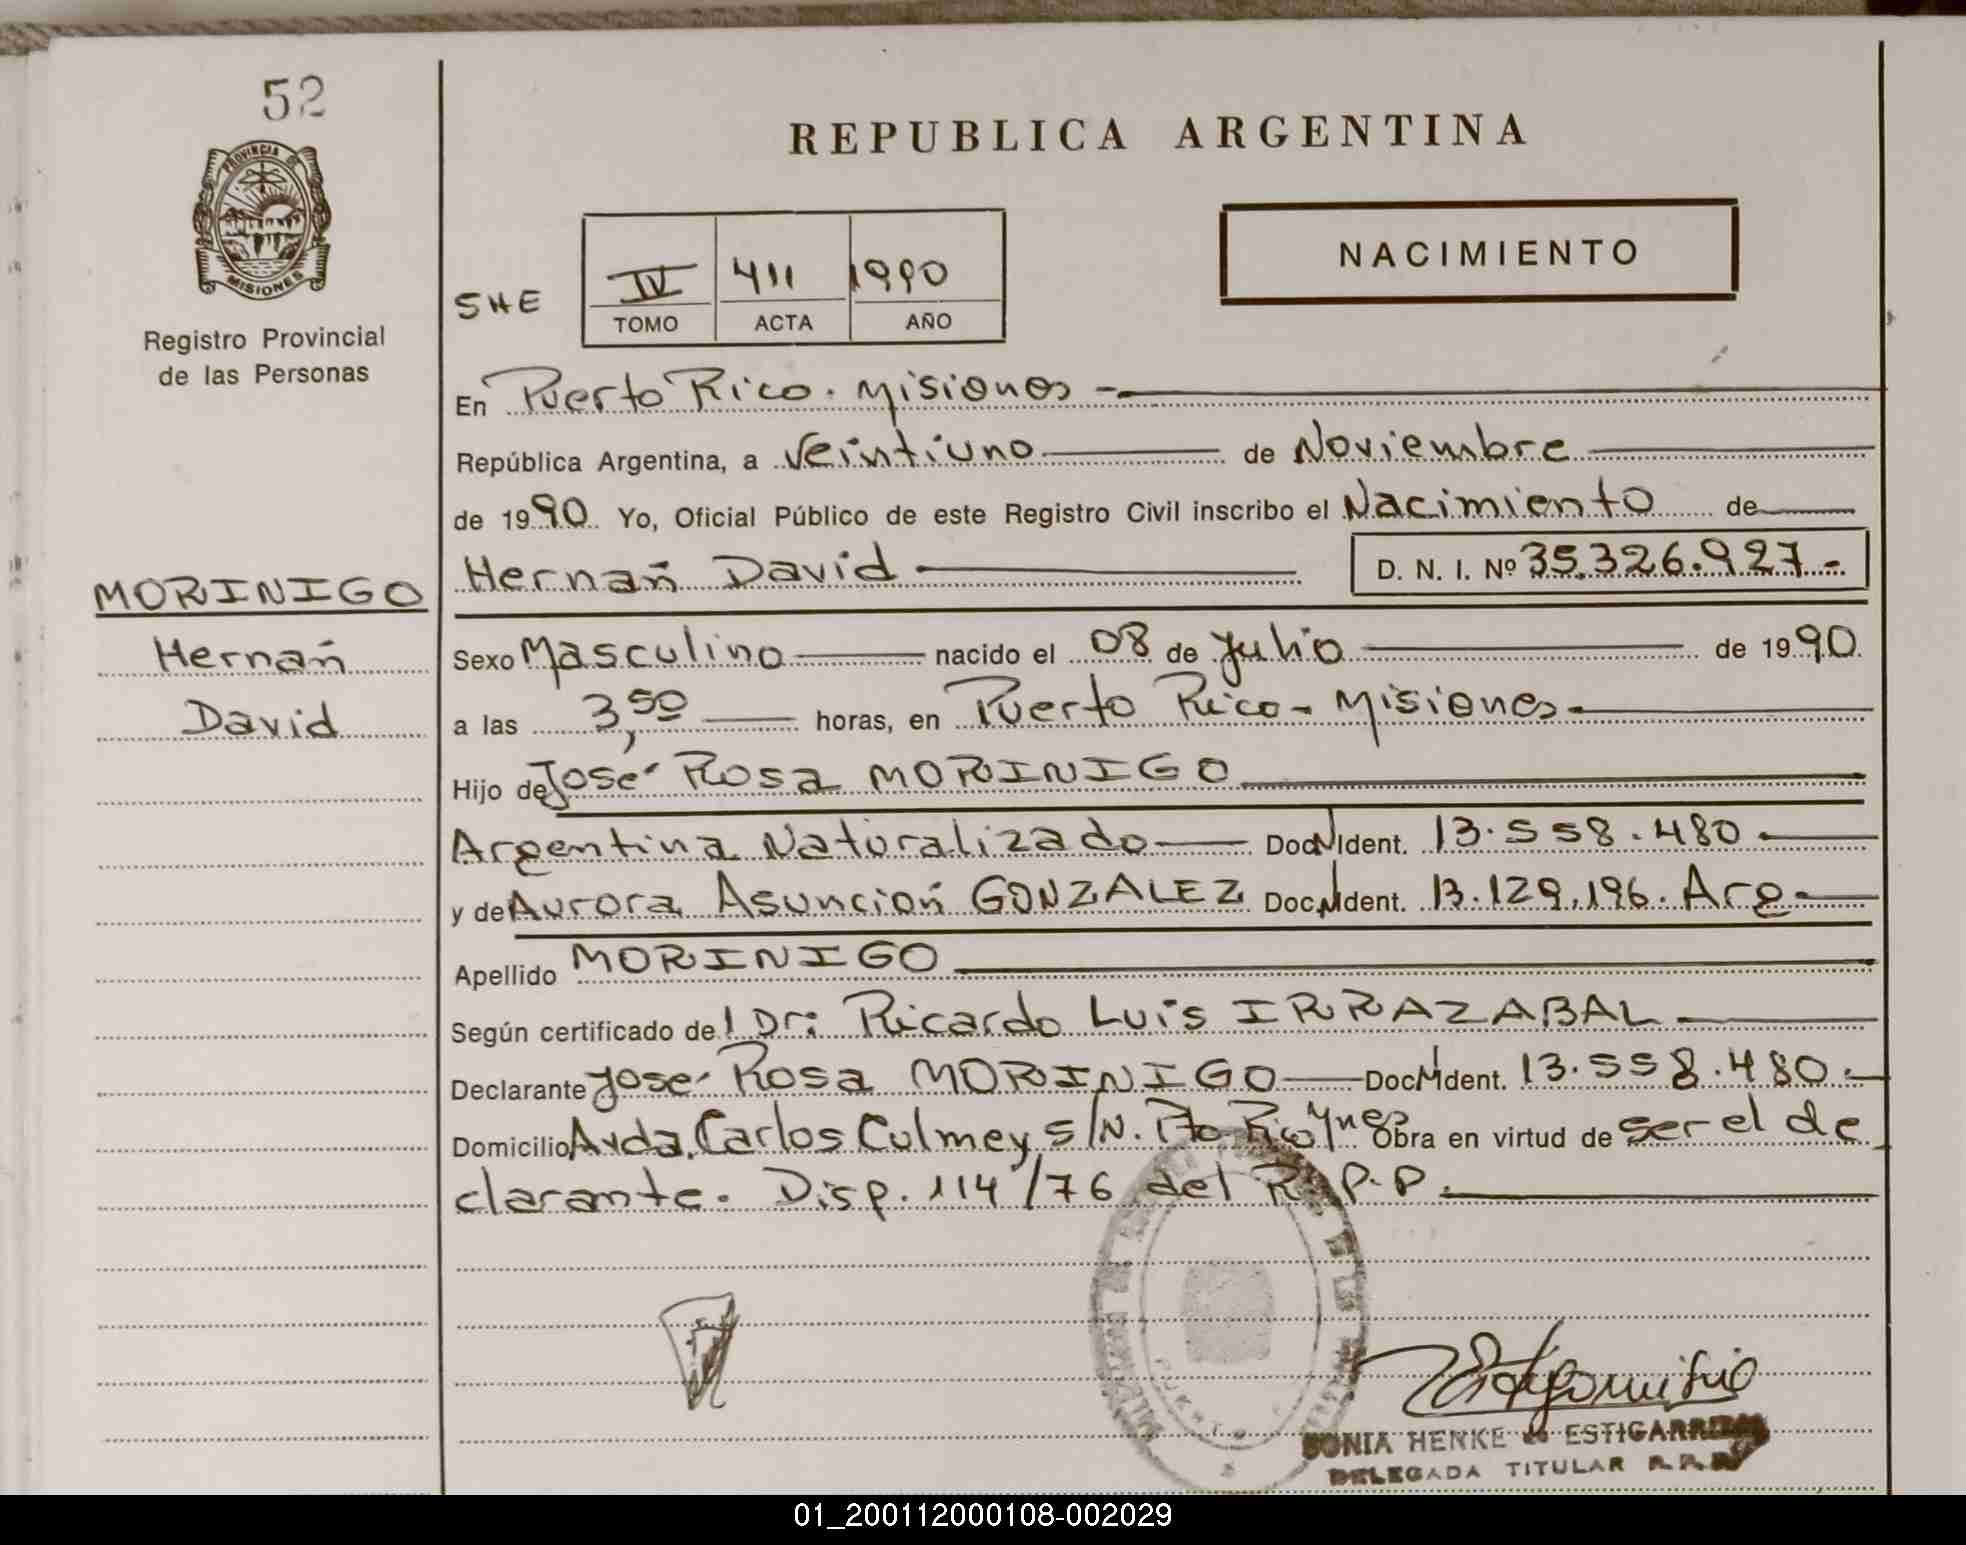 52
REPUBLICA ARGENTINA
PROVINCIA DE
MISIONES
Registro Provincial
de las Personas
NACIMIENTO
SHE
IV 411 1990
TOMO ACTA AÑO
En Puerto Rico. Misiones -
República Argentina, a Veintiuno de Noviembre
de 1990 Yo, Oficial Público de este Registro Civil inscribo el Nacimiento de
Hernán David D. N. I. Nº 35.326.927-
MORINIGO
Hernán
David
Sexo Masculino nacido el 08 de Julio de 1990
a las 3,50 horas, en Puerto Rico - Misiones
Hijo de José Rosa MORINIGO
Argentina Naturalizado Doc. N. Ident. 13.558.480
y de Aurora Asunción GONZALEZ Doc. N. Ident. 13.129.196. Arg.
Apellido MORINIGO
Según certificado del Dr: Ricardo Luis IRRAZABAL
Declarante José Rosa MORINIGO Doc. N. Ident. 13.558.480.
Domicilio Avda. Carlos Culmey s/N. Pto Rico Mnes Obra en virtud de ser el de
clarante. Disp. 114/76 del R.P.P.
SONIA HENKE de ESTIGARRIBIA
DELEGADA TITULAR R.P.P.
01_200112000108-002029